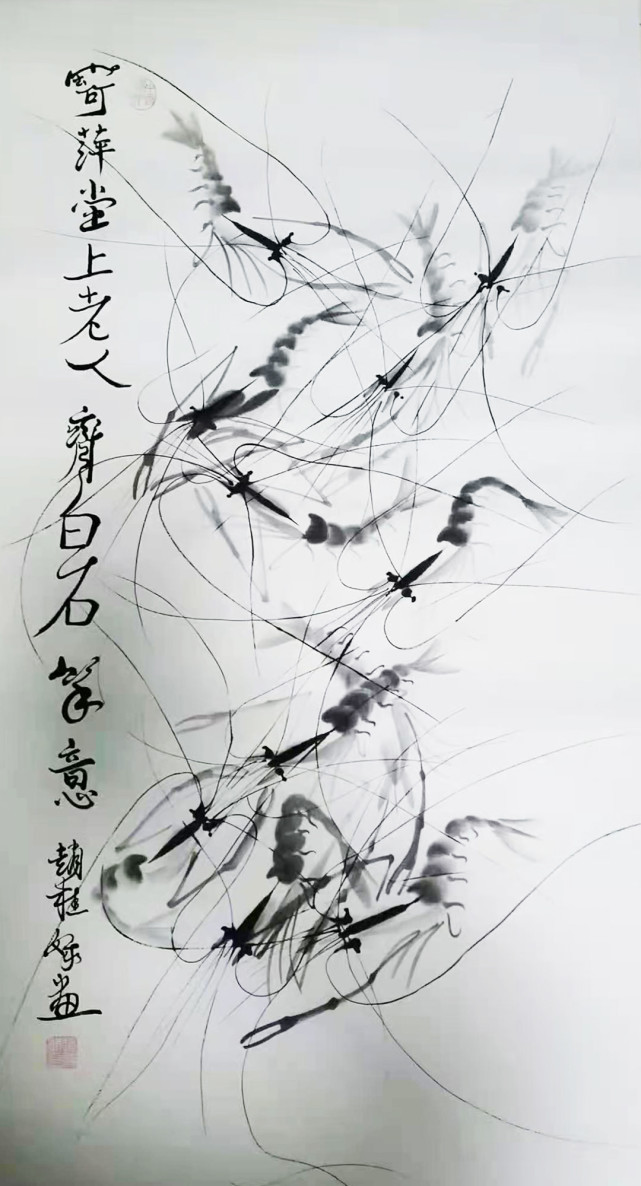 寄萍堂上老人齊白石筆意
趙桂妹畫